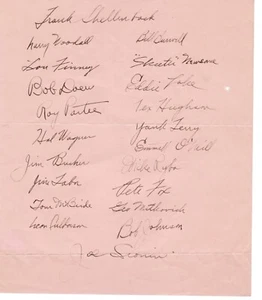 Frank Shellenback
Larry Woodall Bill Conroy
"Lou Finney "Skeeter" Newsome
Bob Doerr Eddie Lake
Roy Partee Tex Hughson
Hal Wagner Yank Terry
Jim Bucher Emmett O'Neill
Jim Tabor Mike Ryba
Tom McBride Pete Fox
Leon Culberson Geo Metkovich
Bob Johnson
Joe Cronin